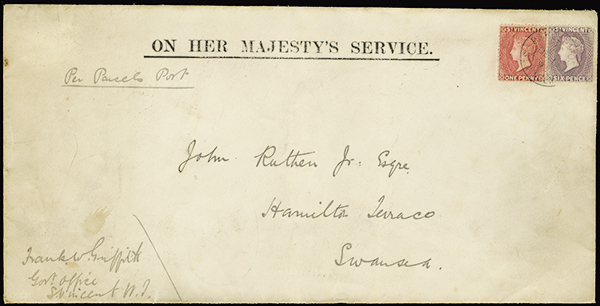 ST VINCENT ST VINCENT
ONE PENNY SIX PENCE
ON HER MAJESTY'S SERVICE.
Per Parcels Post
John Ruthen Jr: Esqre,
Hamilton Terrace
Swansea.
Frank W Griffith
Govt office
St Vincent W.I.